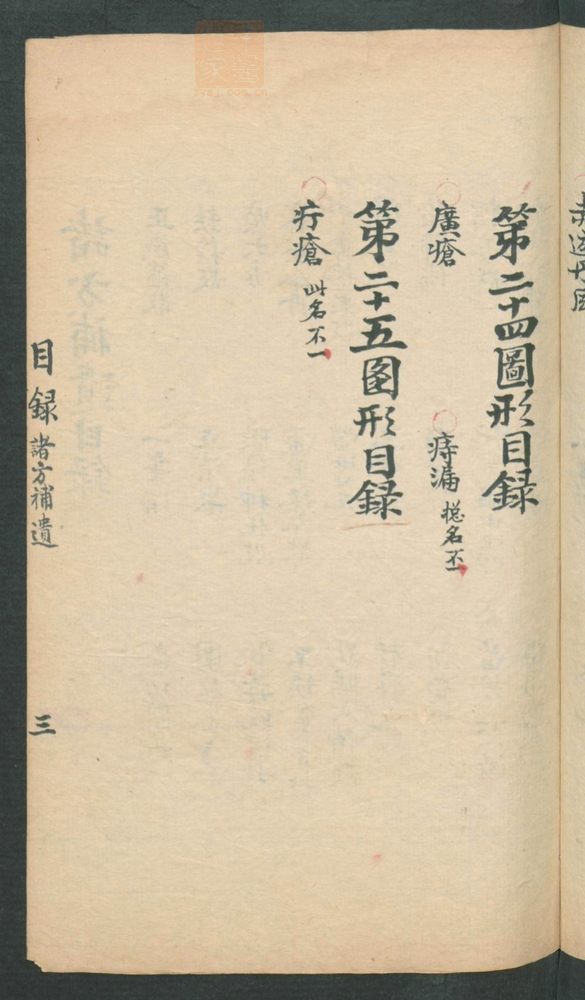 第二十四圖形目録
廣瘡 痔漏 揔名不一
第二十五图形目録
疔瘡 此名不一
目録 諸方補遺 三